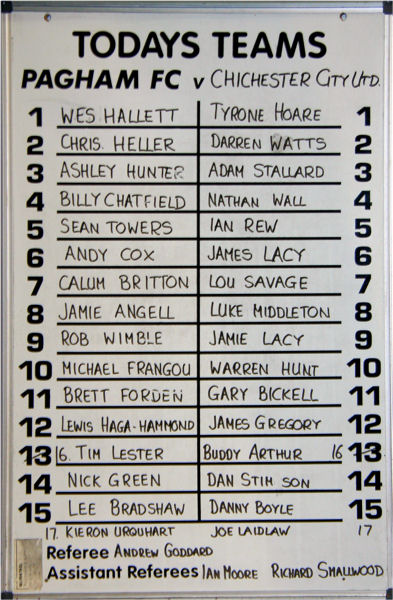 TODAYS TEAMS
PAGHAM FC v CHICHESTER CITY UTD.
1 WES HALLETT TYRONE HOARE 1
2 CHRIS. HELLER DARREN WATTS 2
3 ASHLEY HUNTER ADAM STALLARD 3
4 BILLY CHATFIELD NATHAN WALL 4
5 SEAN TOWERS IAN REW 5
6 ANDY COX JAMES LACY 6
7 CALUM BRITTON LOU SAVAGE 7
8 JAMIE ANGELL LUKE MIDDLETON 8
9 ROB WIMBLE JAMIE LACY 9
10 MICHAEL FRANGOU WARREN HUNT 10
11 BRETT FORDEN GARY BICKELL 11
12 LEWIS HAGA-HAMMOND JAMES GREGORY 12
13 16. TIM LESTER BUDDY ARTHUR 16 13
14 NICK GREEN DAN STIM SON 14
15 LEE BRADSHAW DANNY BOYLE 15
17. KIERON URQUHART JOE LAIDLAW 17
Referee ANDREW GODDARD
Assistant Referees IAN MOORE RICHARD SMALLWOOD